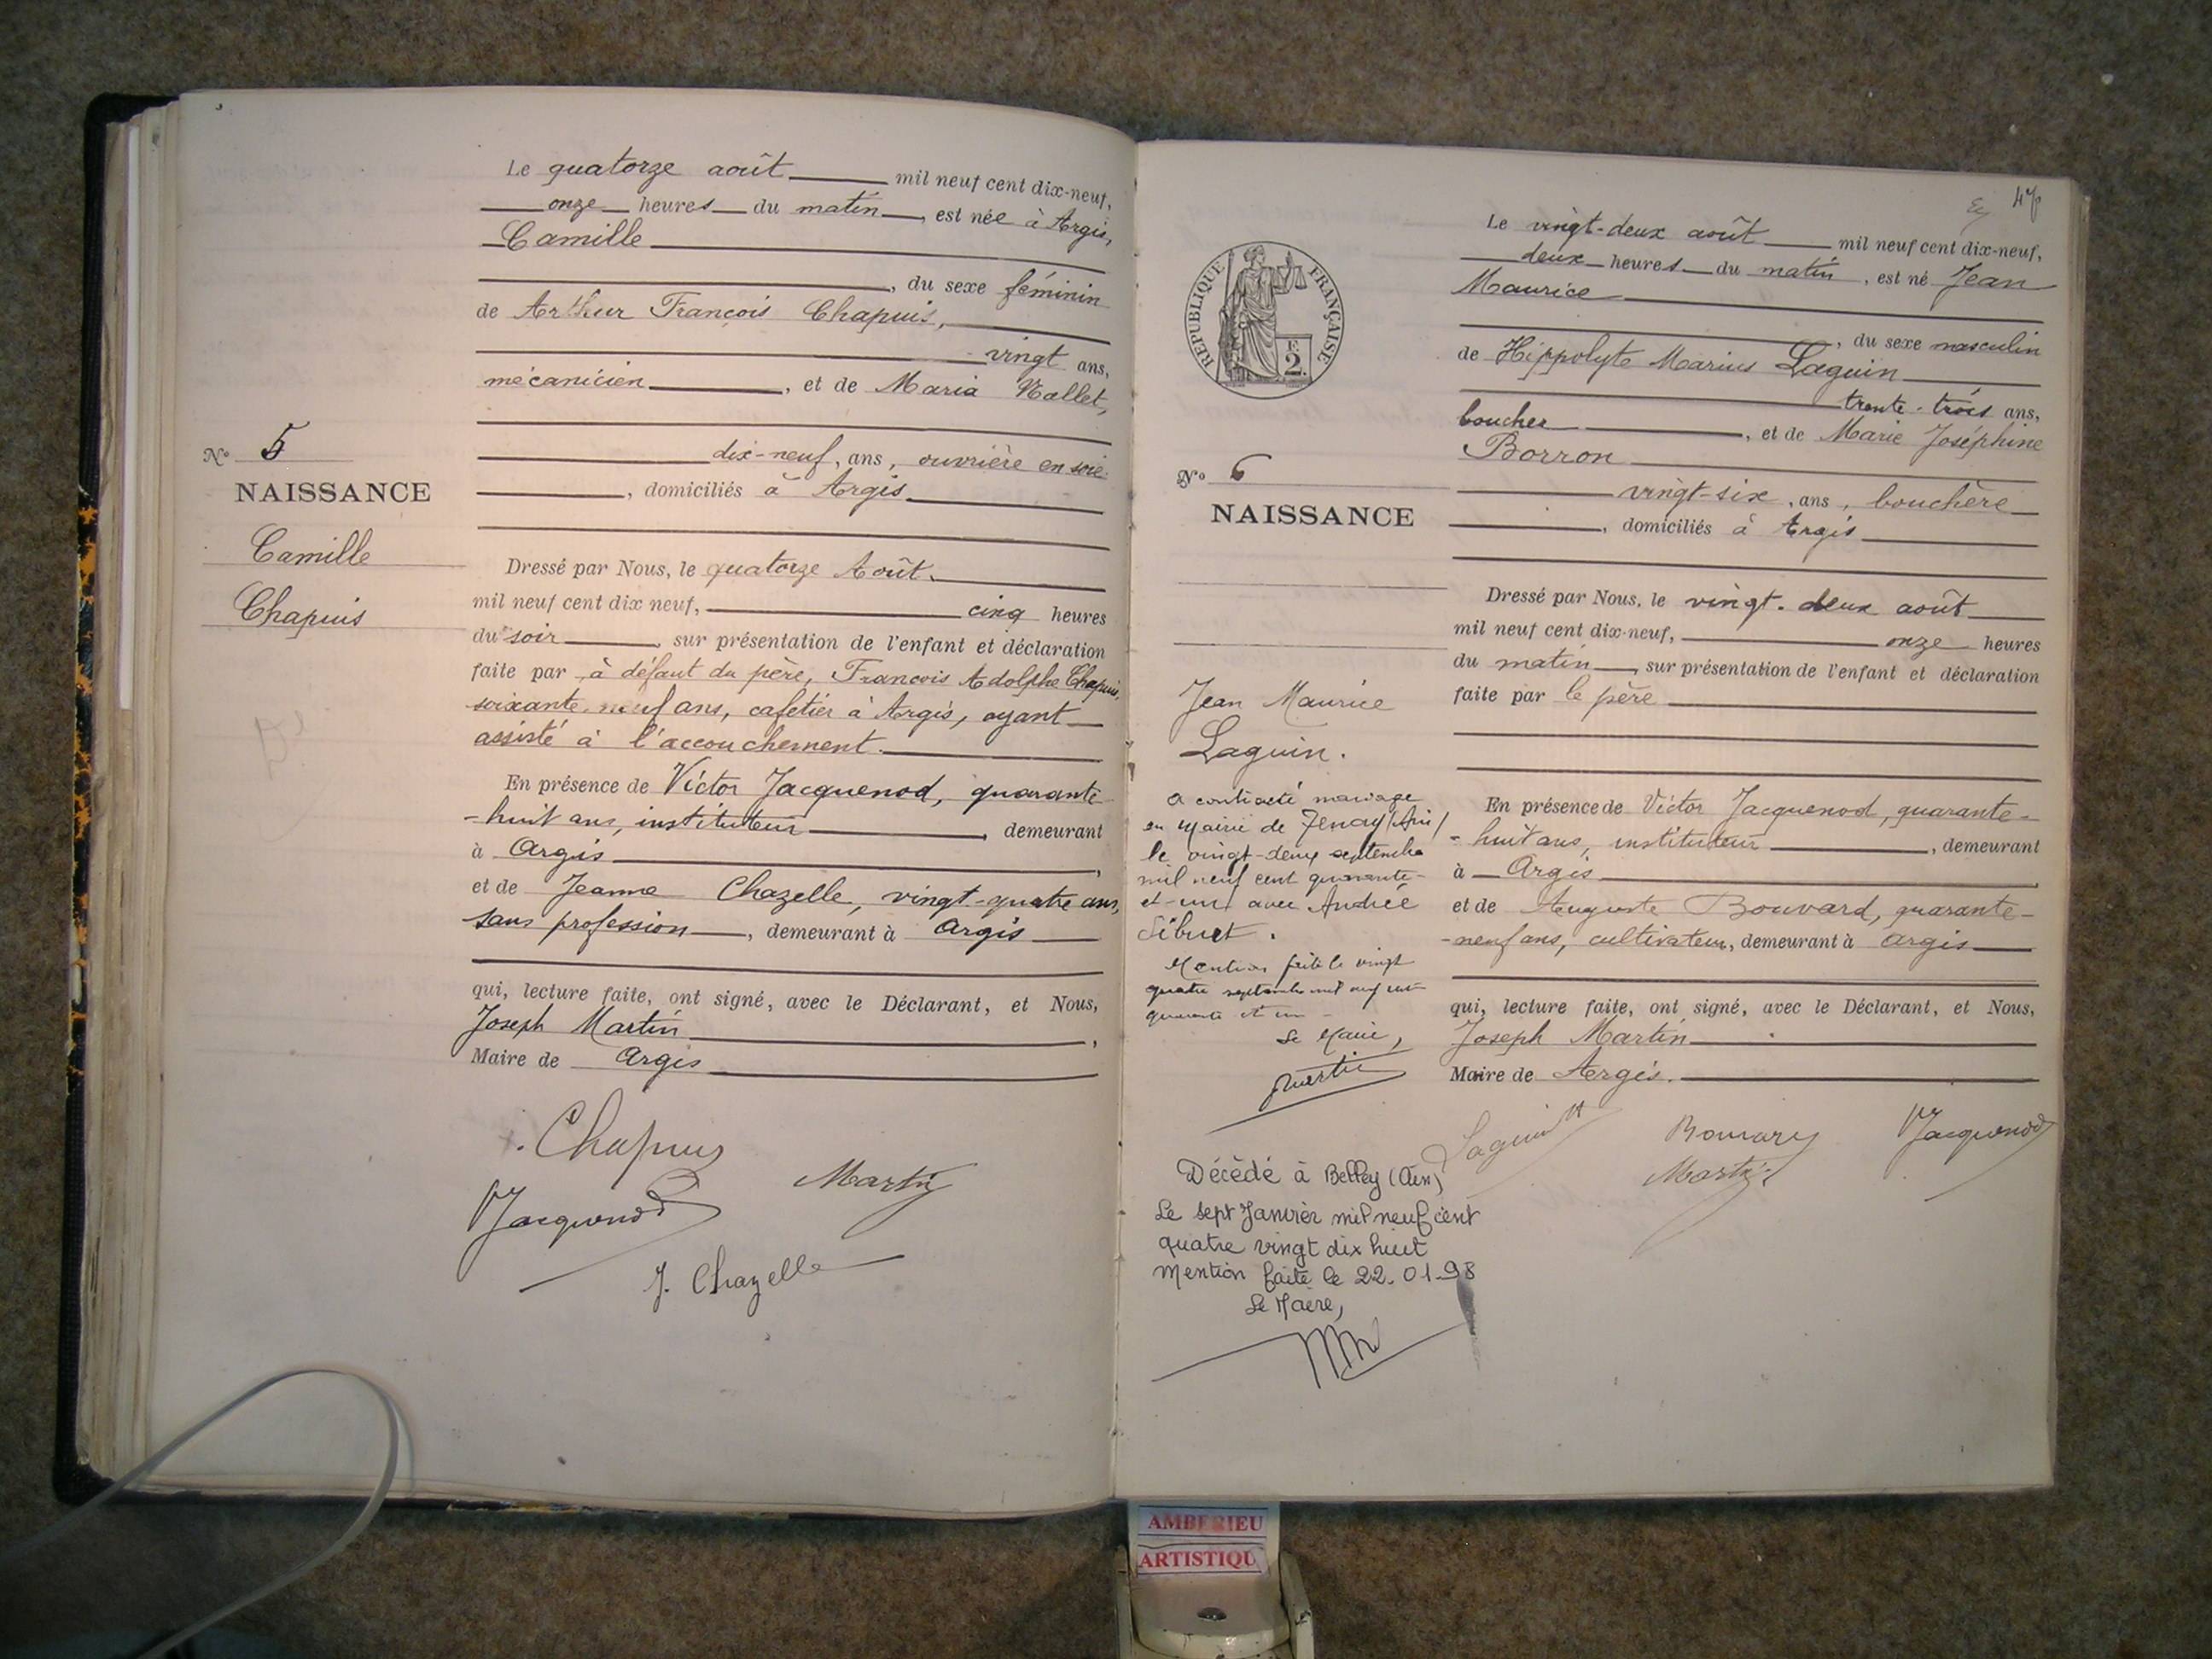 Le quatorze août mil neuf cent dix-neuf,
onze heures du matin, est née à Argis,
Camille
, du sexe féminin
de Arthur François Chapuis,
vingt ans,
mécanicien, et de Maria Nallet,
dix-neuf, ans, ouvrière en soie
, domiciliés à Argis
Nº 5
NAISSANCE
Camille
Chapuis
Dressé par Nous, le quatorze Août.
mil neuf cent dix neuf, cinq heures
du soir, sur présentation de l'enfant et déclaration
faite par, à défaut du père, François Adolphe Chapuis,
soixante-neuf ans, cafetier à Argis, ayant
assisté à l'accouchement.
En présence de Victor Jacquenod, quarante
-huit ans, instituteur, demeurant
à Argis,
et de Jeanne Chazelle, vingt-quatre ans,
sans profession, demeurant à Argis
qui, lecture faite, ont signé, avec le Déclarant, et Nous,
Joseph Martin,
Maire de Argis
Chapuis
Jacquenod
Martin
J. Chazelle
47
RÉPUBLIQUE FRANÇAISE
F.
2.
Le vingt-deux août mil neuf cent dix-neuf,
deux heures du matin, est né Jean
Maurice
, du sexe masculin
de Hippolyte Marius Laguin
trente-trois ans,
boucher, et de Marie Joséphine
Borron
vingt-six, ans, bouchère
, domiciliés à Argis
Nº 6
NAISSANCE
Jean Maurice
Laguin.
a contracté mariage
en Mairie de Tenay (Ain)
le vingt-deux septembre
mil neuf cent quarante-
et-un avec Andrée
Sibuet.
Mention faite le vingt
quatre septembre mil neuf cent
quarante et un
Le Maire,
Martin
Décédé à Belley (Ain)
Le sept Janvier mil neuf cent
quatre vingt dix huit
Mention faite le 22.01.98
Le Maire,
Dressé par Nous, le vingt-deux août
mil neuf cent dix-neuf, onze heures
du matin, sur présentation de l'enfant et déclaration
faite par le père
En présence de Victor Jacquenod, quarante-
-huit ans, instituteur, demeurant
à Argis
et de Auguste Bouvard, quarante-
-neuf ans, cultivateur, demeurant à Argis
qui, lecture faite, ont signé, avec le Déclarant, et Nous,
Joseph Martin
Maire de Argis.
Laguin H
Bouvard
Jacquenod
Martin
AMBERIEU
ARTISTIQU